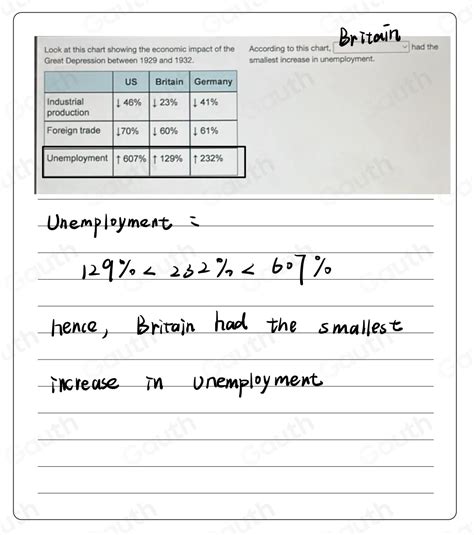 Britain
Look at this chart showing the economic impact of the
Great Depression between 1929 and 1932.
According to this chart, had the
smallest increase in unemployment.
US Britain Germany
Industrial production ↓ 46% ↓ 23% ↓ 41%
Foreign trade ↓70% ↓ 60% ↓ 61%
Unemployment ↑ 607% ↑ 129% ↑ 232%
Unemployment =
129% < 232% < 607%
hence, Britain had the smallest
increase in unemployment
Gauth